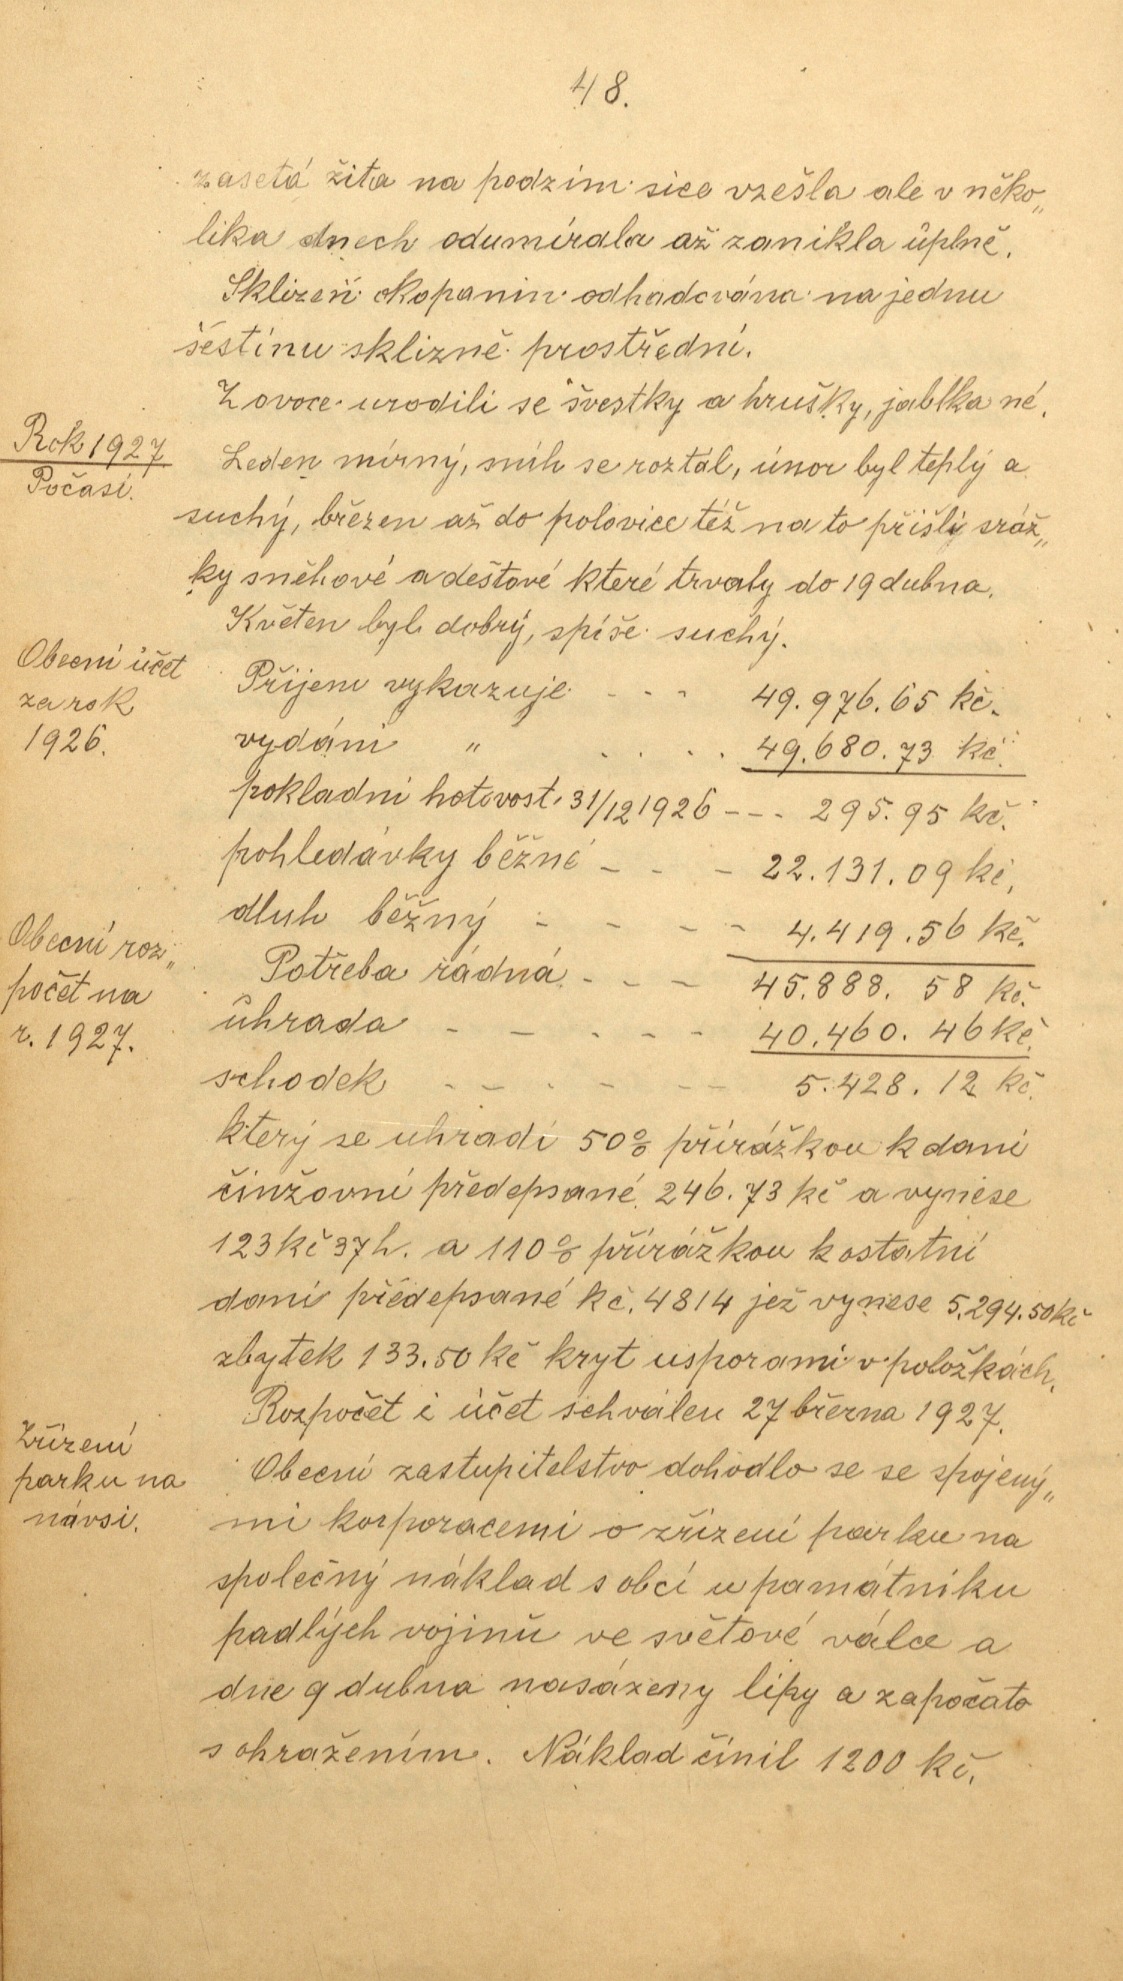 48.
zasetá žita na podzim sice vzešla ale v něko„
lika dnech odumírala až zanikla úplně.
Sklizeň okopanin odhadována na jednu
šestinu sklizně prostřední.
Z ovoce urodili se švestky a hrušky, jablka né.
Rok 1927
Počasí.
Leden mírný, sníh se roztál, únor byl teplý a
suchý, březen až do polovice též na to přišly sráž„
ky sněhové a deštové které trvaly do 19 dubna.
Květen byl dobrý, spíše suchý.
Obecní účet
za rok
1926.
Příjem vykazuje - - - 49.976.65 kč.
vydání " . . . . 49.680.73 kč.
pokladní hotovost 31/12 1926 --- 295.95 kč.
pohledávky běžné - - - 22.131.09 kč.
dluh běžný - - - - - 4.419.56 kč.
Obecní roz„
počet na
r. 1927.
Potřeba řádná - - - 45.888.58 kč.
úhrada - - - - - 40.460.46 kč.
schodek - - - - - - 5.428.12 kč.
který se uhradí 50% přirážkou k dani
činžovní předepsané 246.73 kč a vynese
123 kč 37 h. a 110% přirážkou k ostatní
dani předepsané kč. 4814 jež vynese 5.294.50 kč
zbytek 133.50 kč kryt usporami v položkách.
Rozpočet i účet schválen 27 března 1927.
Zřízení
parku na
návsi.
Obecní zastupitelstvo dohodlo se se spojený„
mi korporacemi o zřízení parku na
společný náklad s obcí u památníku
padlých vojínů ve světové válce a
dne 9 dubna nasázeny lípy a započato
s ohražením. Náklad činil 1200 kč.